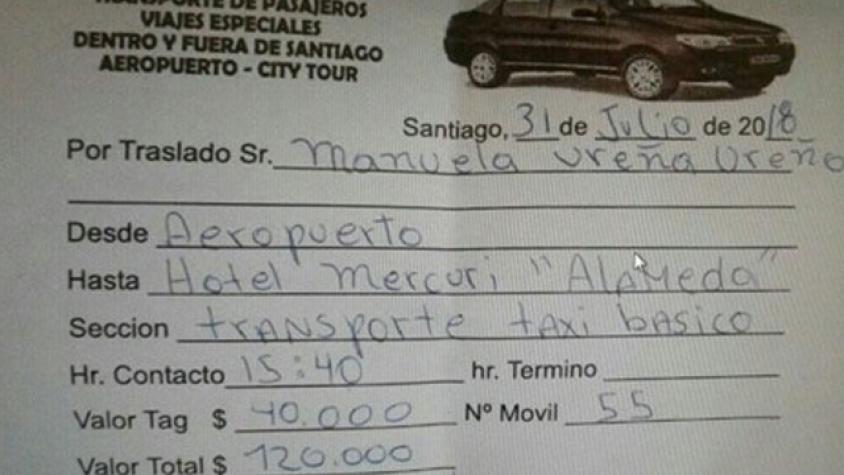 TRANSPORTE DE PASAJEROS
VIAJES ESPECIALES
DENTRO Y FUERA DE SANTIAGO
AEROPUERTO - CITY TOUR
Santiago, 31 de Julio de 2018
Por Traslado Sr. Manuela Ureña Ureño
Desde Aeropuerto
Hasta Hotel Mercuri "Alameda"
Seccion transporte taxi basico
Hr. Contacto 15:40 hr. Termino
Valor Tag $ 40.000 Nº Movil 55
Valor Total $ 120.000